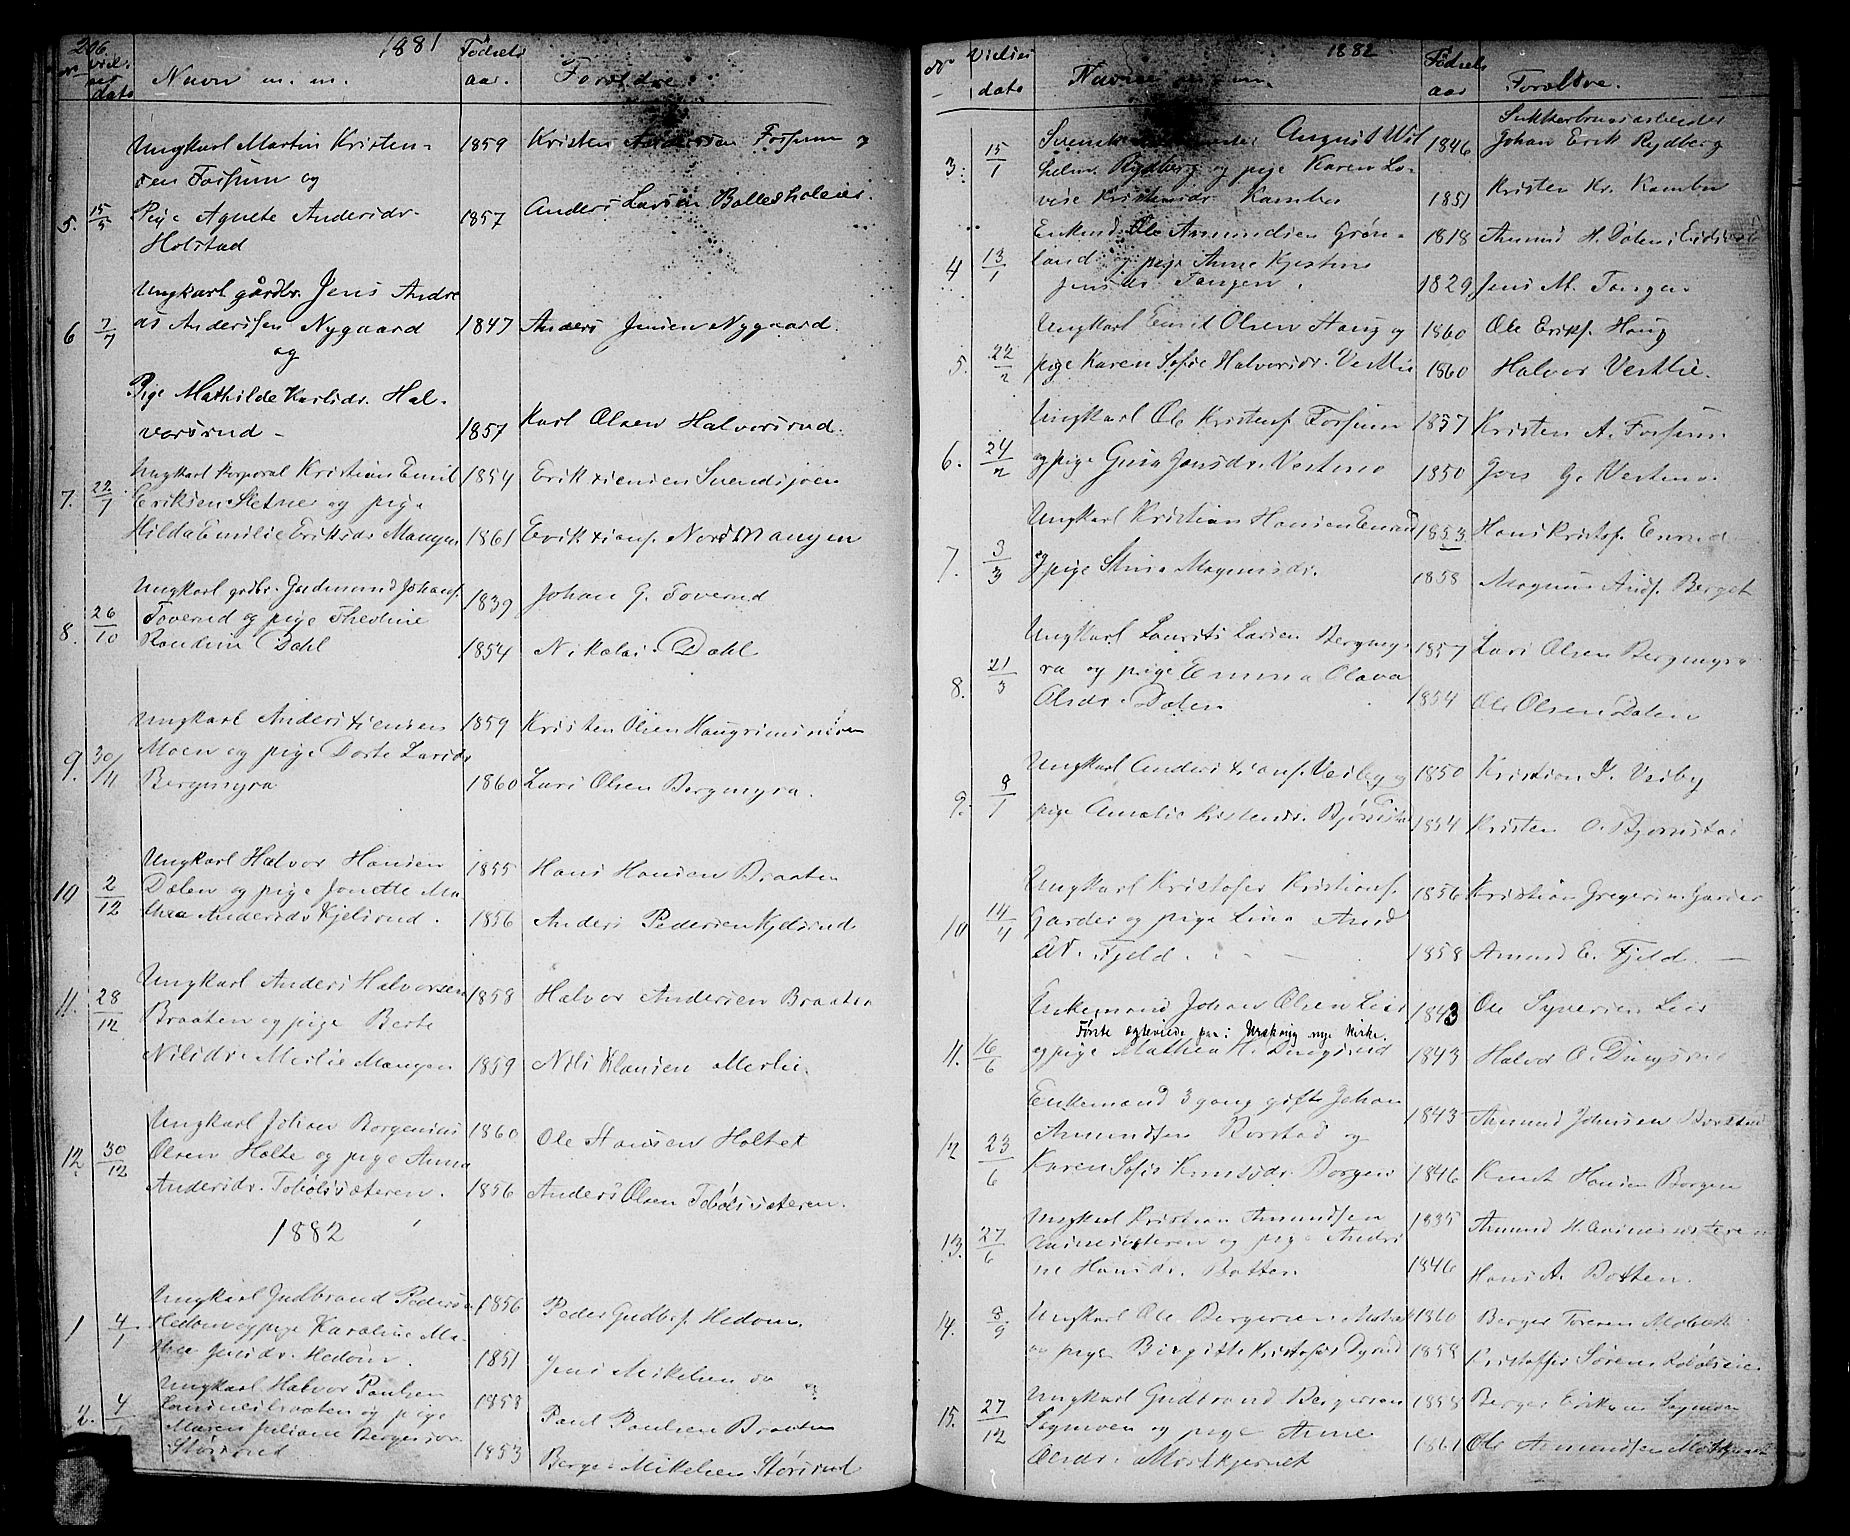 206.
1881
No Viel-
ses
dato
Navn m. m.
Fødsels
aar.
Forældre
Ungkarl Martin Kristen-
sen Forsum og
1859
Kristen Andersen Forsum og
5. 15/5 Pige Agnete Andersdr.
Holstad
1857
Anders Larsen Bolleshol
Ungkarl gårdbr. Jens Andre
6 7/7 as Andersen Nygaard
og
1847
Anders Jensen Nygaard.
Pige Mathilde Karlsdr. Hal-
vorsrud -
1857
Karl Olsen Halvorsrud.
Ungkarl korporal Kristian Emil
1854
Erik Svendsjøen
7. 22/7 Eriksen Sletne og pige
Hilda Emilie Eriksdr Mangen
1861
Erik Nord Mangen
Ungkarl grdbr. Gudmund Johans.
Toverud og pige Thedine
1839
Johan G. Toverud
8. 26/10 Randine Dahl
1854
Nikolai Dahl
Ungkarl Anders
1859
Kristen Olsen
Moen og pige Dorte Larsdr
9. 30/11 Bergmyra
1860
Lars Olsen Bergmyra.
Ungkarl Halvor Hansen
1855
Hans Hansen Braaten
10 2/12 Dalen og pige Jonette Ma
thea Andersdr Kjelsrud.
1856
Anders Pedersen Kjelsrud
Ungkarl Anders Halvorsen
1858
Halvor Andersen Braaten
11. 28/12 Braaten og pige Berte
Nilsdr. Merlie Mangen
1859
Nils Klausen Merlie.
Ungkarl Johan Borgenius
1860
Ole Hansen Holtet
12. 30/12 Olsen Holte og pige Anna
Andersdr. Tobølsæteren.
1856
Anders Olsen Tobølsæteren.
1882
Ungkarl Gudbrand Peders
1856
Peder Gudbr. Hedom
1 4/1 Hedom og pige Karoline Ma-
thea Jensdr. Hedom.
1851
Jens Mikelsen
Ungkarl Halvor Paulsen
1858
Paul Paulsen Braaten
2. 4 og pige
Maren Juliane Bergersdr.
Størsrud
1853
Berger Mikelsen Størsrud
1882
No Vielses
dato
Navne
Fødsels
aar
Forældre.
Sukkerbrusarbeider
Svensk August Wil
1846
Johan Erik Rydberg
3. 15/1 helm Rydberg og pige Karen Lo-
vise Kristensdr. Kambo
1851
Kristen Kr. Kambo
Enkmd. Ole Amundsen Grøn-
1818
Amund H. Dølen i Eidsvold
4 13/1 land og pige Anne Kjestine
Jensdr. Tangen.
1829
Jens M. Tangen
Ungkarl Emil Olsen Haug og
1860
Ole Eriks. Haug
5. 22/2 pige Karen Sofie Halvorsdr. Vestlie
1860
Halvor Vestlie.
Ungkarl Ole Kristens. Forsum
1857
Kristen A. Forsum
6. 24/2 og pige Gusta Jensdr. Vestmo
1850
Jens G. Vestmo.
Ungkarl Kristian Hansen Enrud
1853
Hans Kristof. Enrud
7. 3/3 og pige Stina Magnusdr.
1858
Magnus And. Berget
Ungkarl Laurits Larsen Bergmy-
1857
Lars Olsen Bergmyra
8. 21/3 ra og pige Emma Olava
Olsdr. Dalen
1854
Ole Olsen Dalen
Ungkarl Anders Veiby og
1850
Kristian K. Veiby
9. 9/1 pige Amalie Kristensdr. Bjørnstad
1854
Kristen O. Bjørnstad
Ungkarl Kristofer Kristians.
1856
Kristian Gregersen Garder
10 14/4 Garder og pige Lina Amd
sdt. Fjeld.
1858
Amund E. Fjeld.
Enkemand Johan Olsen Lier
1843
Ole Syversen Lier
Første ægteviede par i Urskoug nye kirke.
11. 16/6 og pige Mathea H. Dingsrud
1843
Halvor O. Dingsrud
Enkemand 3 gang gifte Johan
1843
Amund Johnsen Borstad
12 23/6 Amundsen Borstad og
Karen Sofie Knudsdr. Borgen
1846
Knut Hansen Borgen
Ungkarl Kristian Amundsen
1835
Amund H.
13. 27/6 og pige Andri
ne Hansdr. Botten
1846
Hans A. Botten.
14. 8/9 Ungkarl Ole Bergersen
1860
Berger Toresen
og pige Birgitte Kristofersdr
1858
Kristoffer Sørens.
Ungkarl Gudbrand Bergersen
1858
Berger Eriksen Sagmoen
15. 27/12 Sagmoen og pige Anne
Olsdr. Mostkjernet
1861
Ole Amundsen Mostkjernet